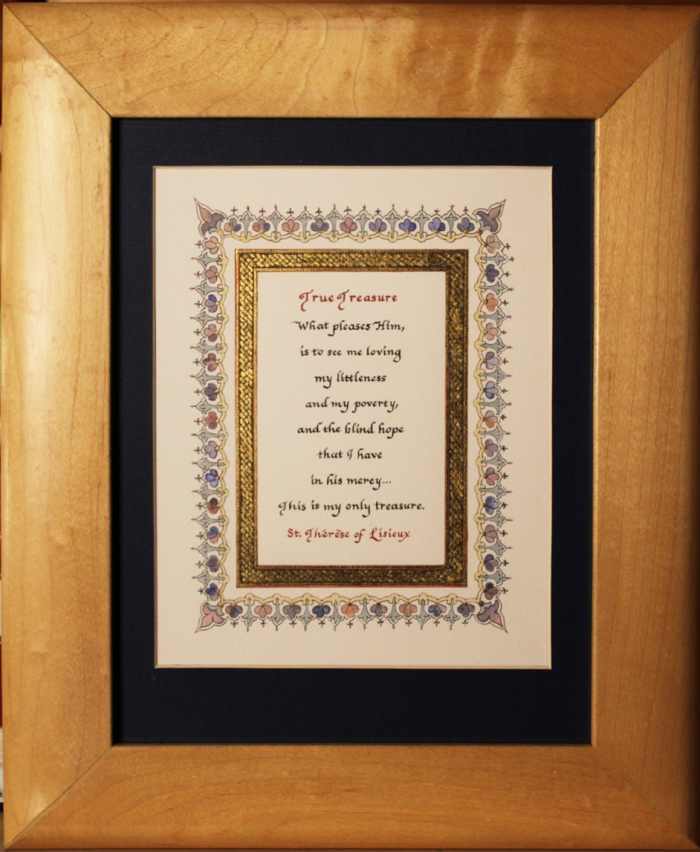 True Treasure
What pleases Him,
is to see me loving
my littleness
and my poverty,
and the blind hope
that I have
in his mercy...
This is my only treasure.
St. Thérèse of Lisieux